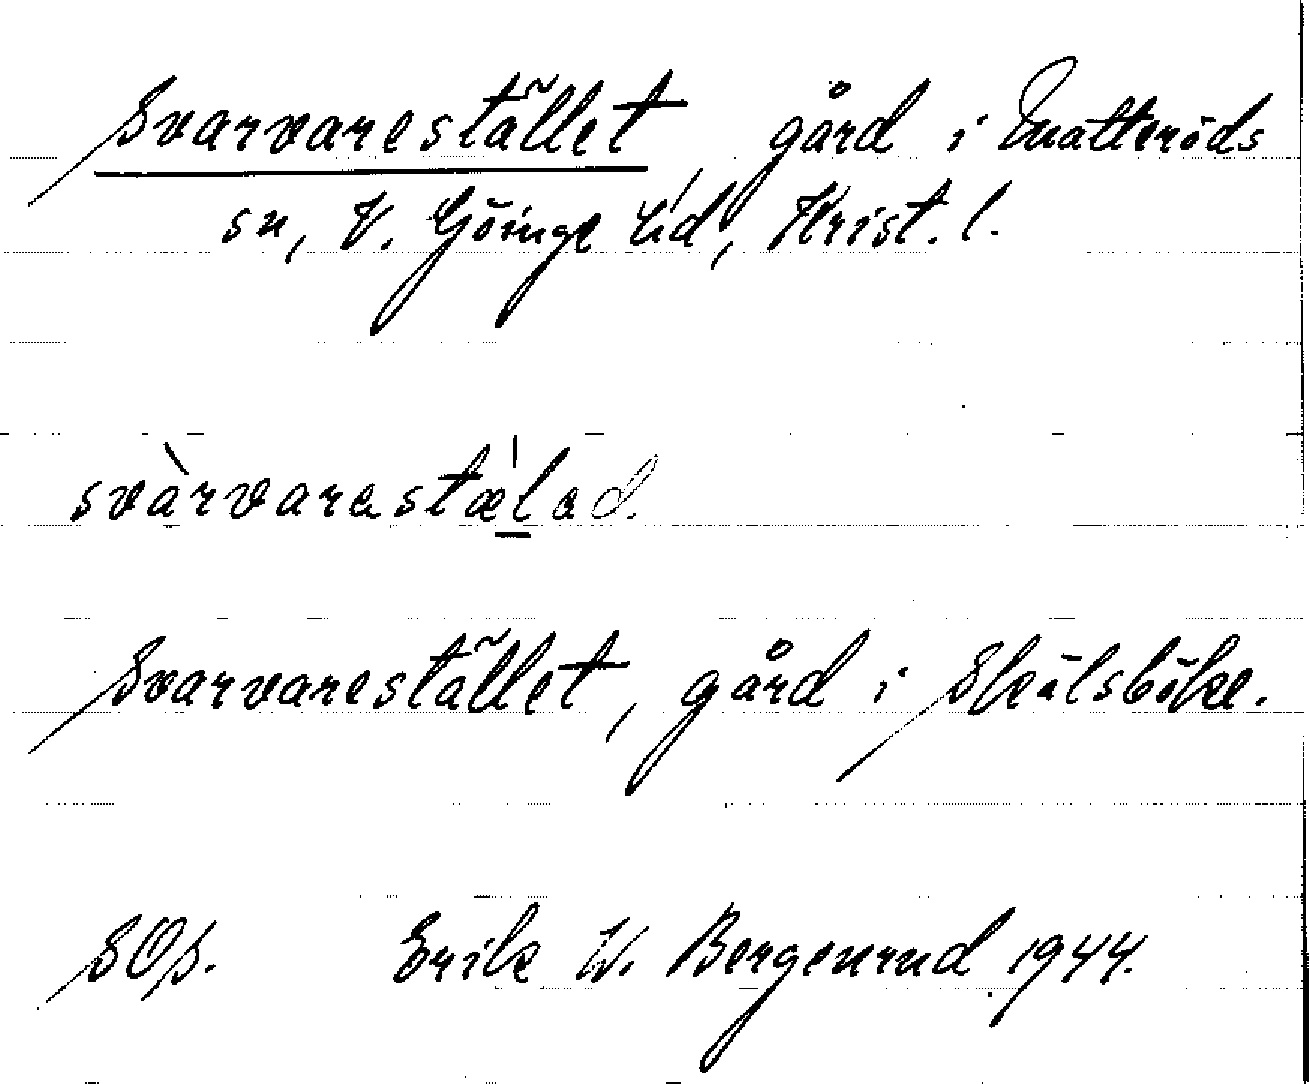 Svarvarestället, gård i Matteröds
sn, V. Göinge hd, Krist. l.
svàrvarastæ̲lad.
Svarvarestället, gård i Skälsböke.
SOp. Erik W. Bergenrud 1944.